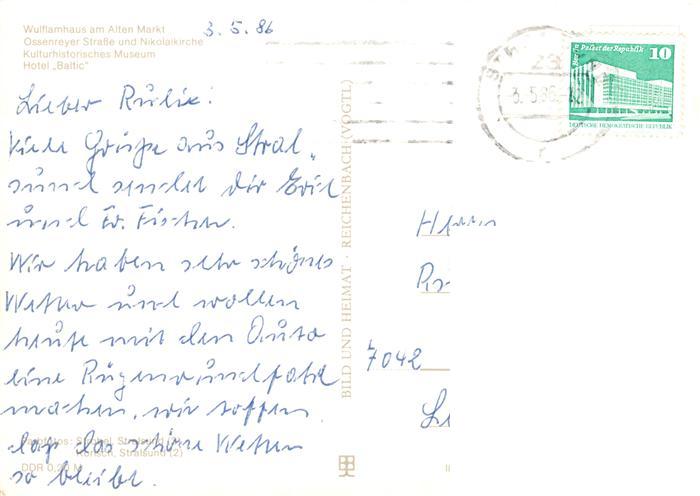 Wulflamhaus am Alten Markt
Ossenreyer Straße und Nikolaikirche
Kulturhistorisches Museum
Hotel „Baltic"
3.5.86
Lieber Rulix!
Viele Grüße aus Stral„
sund sendet dir Evil
und Fr. Fischer.
Wir haben sehr schönes
Wetter und wollen
heute mit dem Auto
eine Rügenrundfahrt
machen, wir hoffen
daß das schöne Wetter
so bleibt.
Farbfotos: Stralsund
Korsch, Stralsund (2)
DDR 0,20 M
BILD UND HEIMAT · REICHENBACH (VOGTL)
3.5.86
23
Berlin, Palast der Republik
10
DEUTSCHE DEMOKRATISCHE REPUBLIK
Herrn
7042